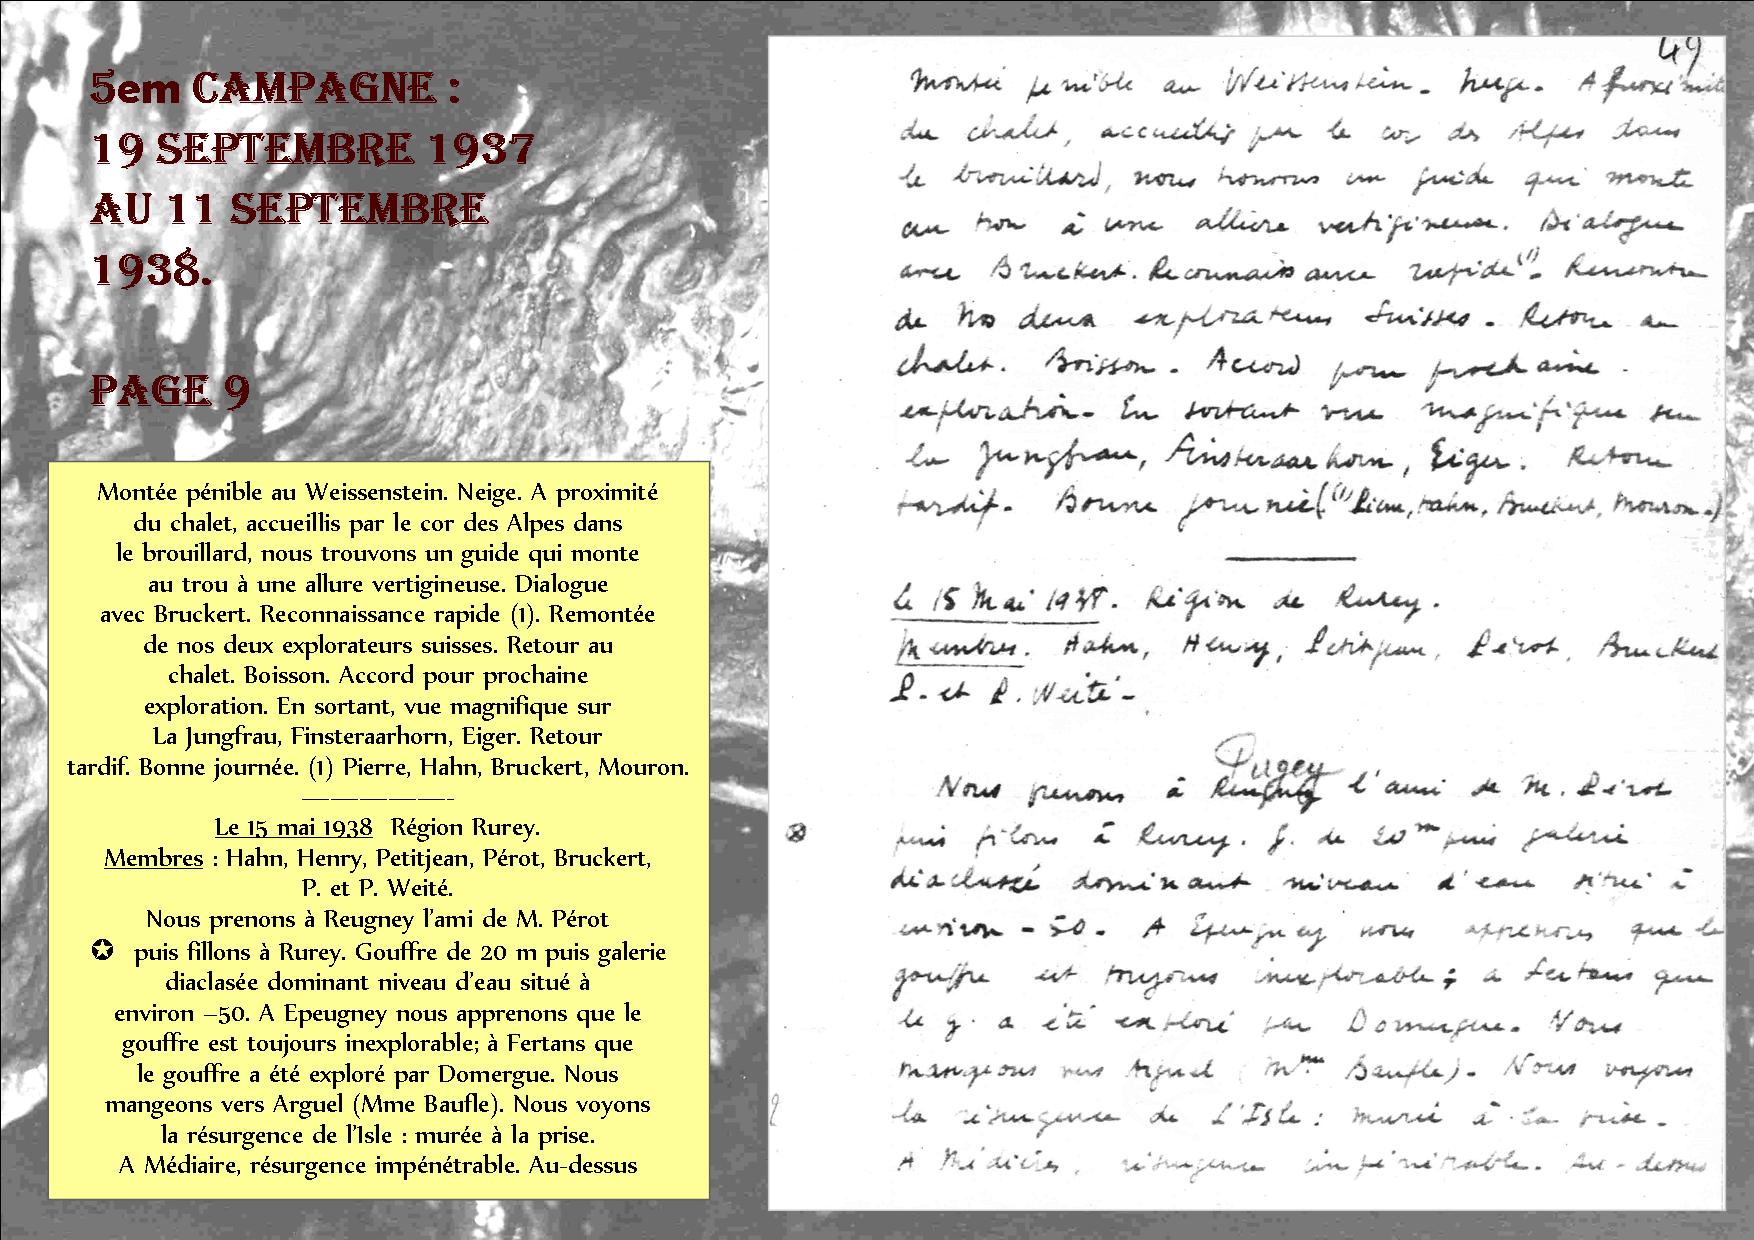 5em CAMPAGNE :
19 SEPTEMBRE 1937
AU 11 SEPTEMBRE
1938.
PAGE 9
Montée pénible au Weissenstein. Neige. A proximité
du chalet, accueillis par le cor des Alpes dans
le brouillard, nous trouvons un guide qui monte
au trou à une allure vertigineuse. Dialogue
avec Bruckert. Reconnaissance rapide (1). Remontée
de nos deux explorateurs suisses. Retour au
chalet. Boisson. Accord pour prochaine
exploration. En sortant, vue magnifique sur
La Jungfrau, Finsteraarhorn, Eiger. Retour
tardif. Bonne journée. (1) Pierre, Hahn, Bruckert, Mouron.
———————-
Le 15 mai 1938 Région Rurey.
Membres : Hahn, Henry, Petitjean, Pérot, Bruckert,
P. et P. Weité.
Nous prenons à Reugney l'ami de M. Pérot
✪ puis fillons à Rurey. Gouffre de 20 m puis galerie
diaclasée dominant niveau d'eau situé à
environ –50. A Epeugney nous apprenons que le
gouffre est toujours inexplorable; à Fertans que
le gouffre a été exploré par Domergue. Nous
mangeons vers Arguel (Mme Baufle). Nous voyons
la résurgence de l'Isle : murée à la prise.
A Médiaire, résurgence impénétrable. Au-dessus
49
Montée pénible au Weissenstein. Neige. A proximité
du chalet, accueillis par le cor des Alpes dans
le brouillard, nous trouvons un guide qui monte
au trou à une allure vertigineuse. Dialogue
avec Bruckert. Reconnaissance rapide (1). Remontée
de nos deux explorateurs suisses. Retour au
chalet. Boisson. Accord pour prochaine
exploration. En sortant vue magnifique sur
la Jungfrau, Finsteraarhorn, Eiger. Retour
tardif. Bonne journée ((1) Pierre, Hahn, Bruckert, Mouron.)
Le 15 Mai 1938. Région de Rurey.
Membres. Hahn, Henry, Petitjean, Pérot, Bruckert
P. et P. Weité.
Pugey
Nous prenons à Reugney l'ami de M. Pérot
puis filons à Rurey. g. de 20m puis galerie
diaclasée dominant niveau d'eau situé à
environ -50. A Epeugney nous apprenons que le
gouffre est toujours inexplorable; a Fertans que
le g. a été exploré par Domergue. Nous
mangeons vers Arguel (Mme Baufle). Nous voyons
la résurgence de L'Isle : murée à la prise.
A résurgence impénétrable. Au-dessus